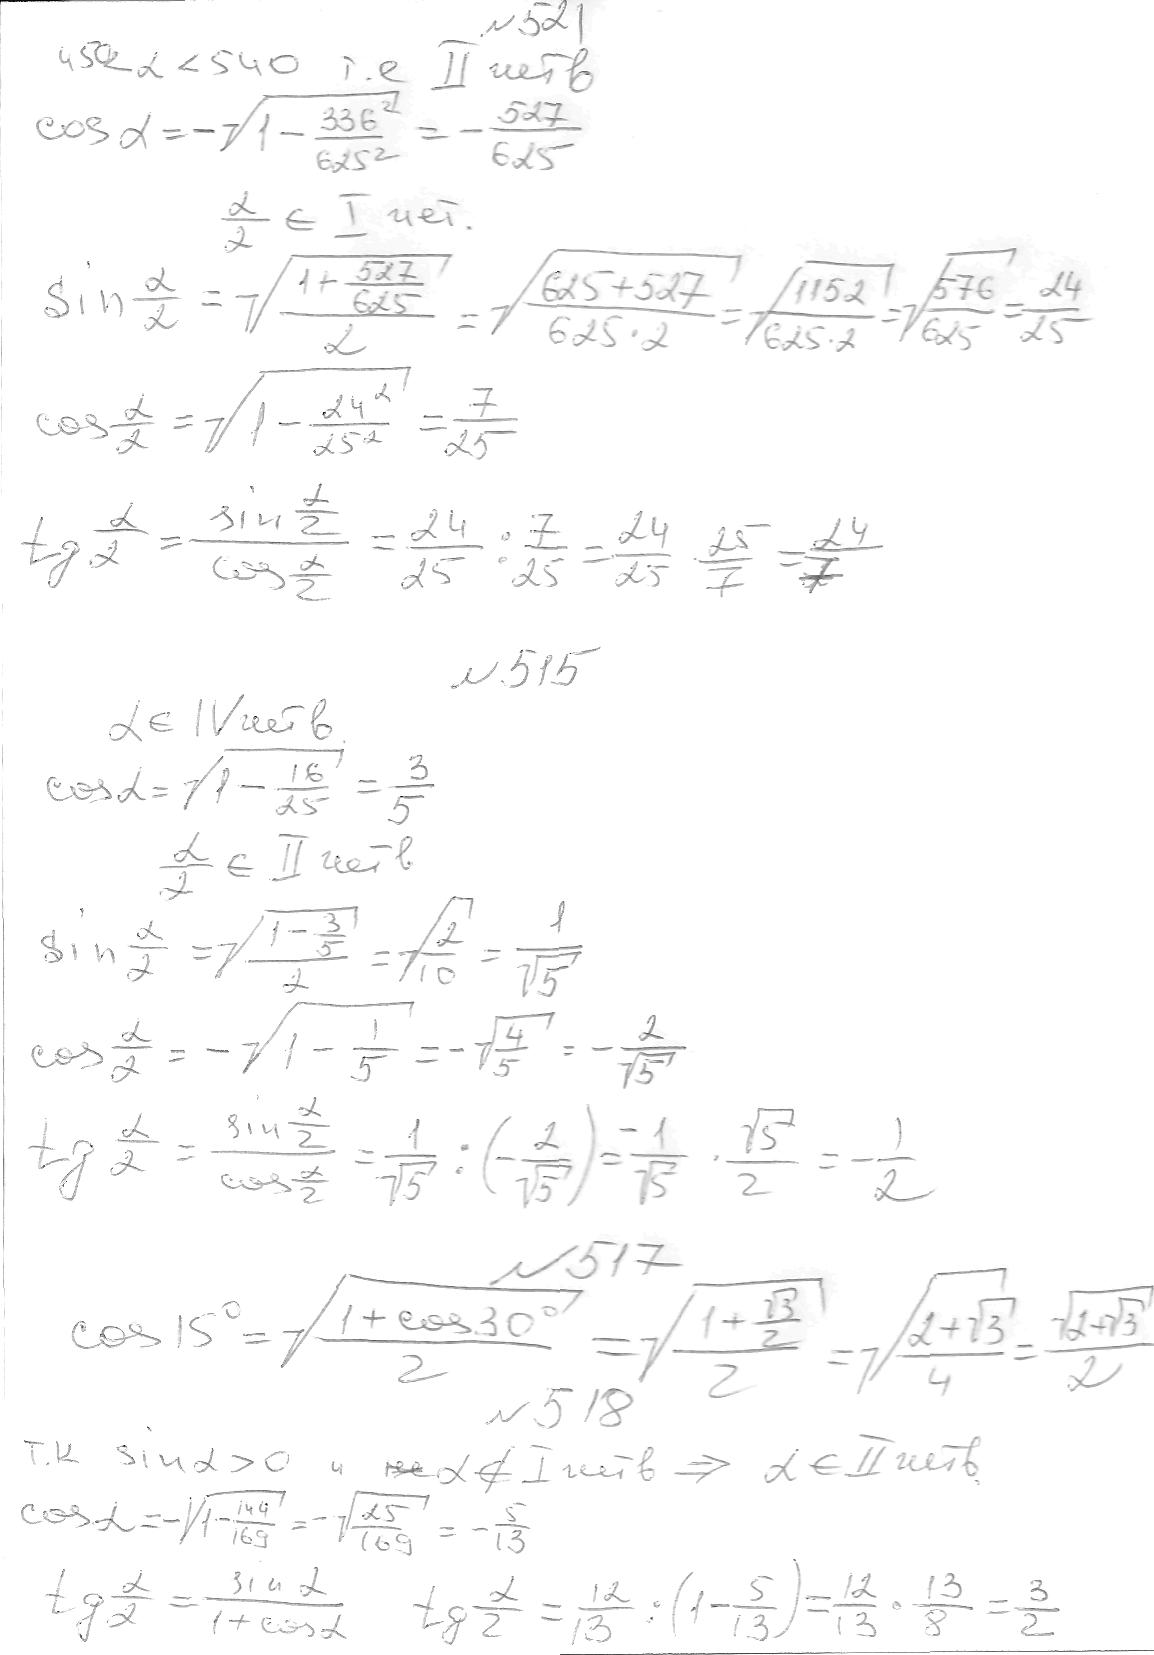 №521
450<α<540 т.е II четв
cos α = -√(1 - 336²/625²) = - 527/625
α/2 ∈ I чет.
sin α/2 = √((1 + 527/625)/2) = √((625+527)/(625·2)) = √(1152/(625·2)) = √(576/625) = 24/25
cos α/2 = √(1 - 24²/25²) = 7/25
tg α/2 = (sin α/2)/(cos α/2) = 24/25 : 7/25 = 24/25 · 25/7 = 24/7
№515
α ∈ IV четв.
cos α = √(1 - 16/25) = 3/5
α/2 ∈ II четв
sin α/2 = √((1 - 3/5)/2) = √(2/10) = 1/√5
cos α/2 = -√(1 - 1/5) = -√(4/5) = - 2/√5
tg α/2 = (sin α/2)/(cos α/2) = 1/√5 : (- 2/√5) = -1/√5 · √5/2 = - 1/2
№517
cos 15° = √((1 + cos 30°)/2) = √((1 + √3/2)/2) = √((2+√3)/4) = √(2+√3)/2
№518
т.к sin α > 0 и α ∉ I четв ⇒ α ∈ II четв.
cos α = -√(1 - 144/169) = -√(25/169) = - 5/13
tg α/2 = sin α/(1 + cos α) tg α/2 = 12/13 : (1 - 5/13) = 12/13 · 13/8 = 3/2